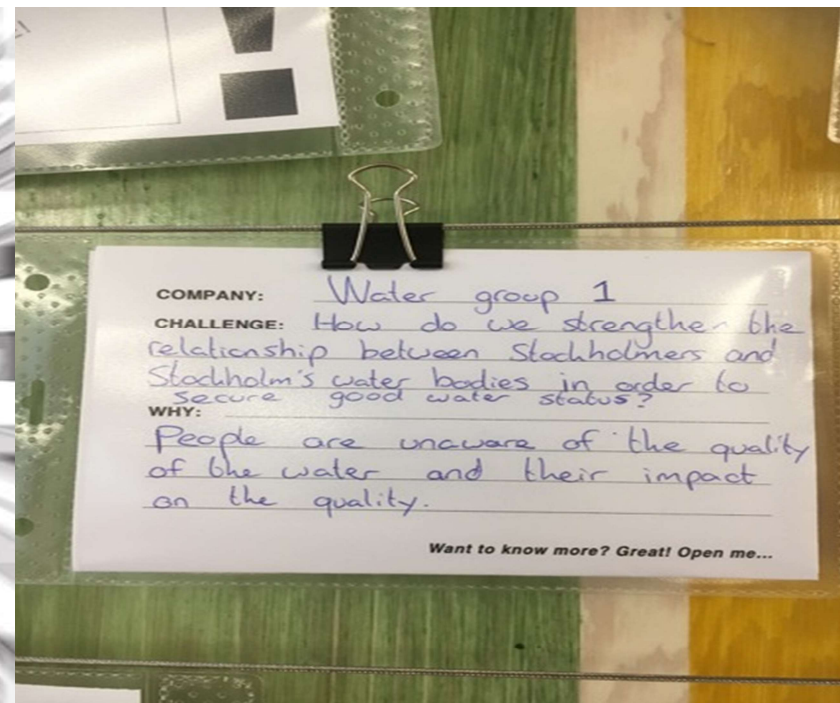 !
COMPANY: Water group 1
CHALLENGE: How do we strengthen the
relationship between Stockholmers and
Stockholm's water bodies in order to
secure good water status?
WHY:
People are unaware of the quality
of the water and their impact
on the quality.
Want to know more? Great! Open me...